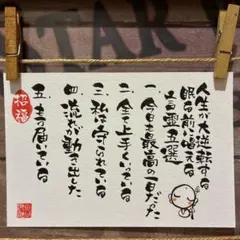 人生が大逆転する
眠る前に唱える
言霊五選
一、今日も最高の一日だった
二、全て上手くいっている
三、私は守られている
四、流れが動き出した
五、もう届いている
招福